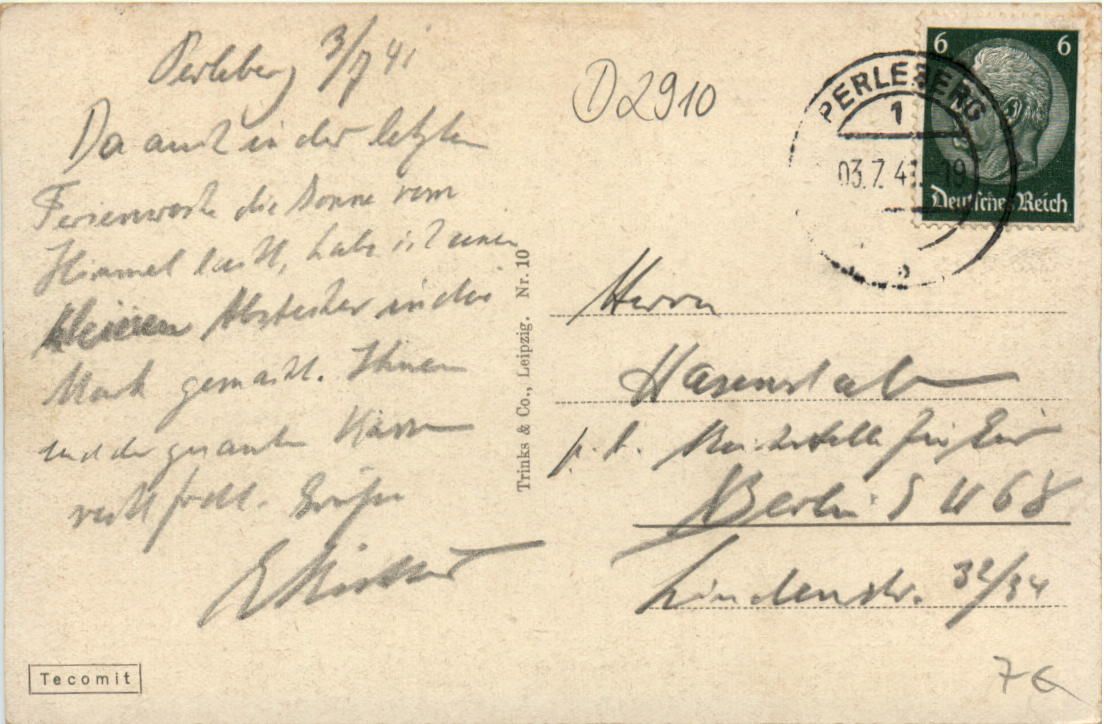 Perleberg 3/7 41
Da auch in der letzten
Ferienwoche die Sonne vom
Himmel lacht, habe ich einen
kleinen Abstecher in die
Mark gemacht. Ihnen
und der gesamten
recht frdl. Grüße
D2910
PERLEBERG
1
03.7.41.-19
6 6
Deutsches Reich
Trinks & Co., Leipzig. Nr. 10
Herrn
Hasenstab
Reichsstelle für Eier
Berlin SW 68
Lindenstr. 32/34
Tecomit
7€